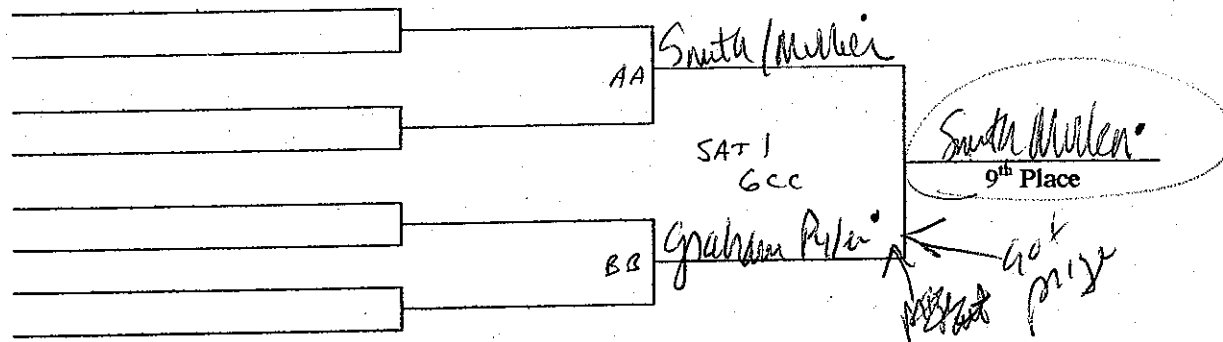 AA Smith / Miller
SAT 1
6CC
Smith Miller
9th Place
BB Graham Pyler
got
prize